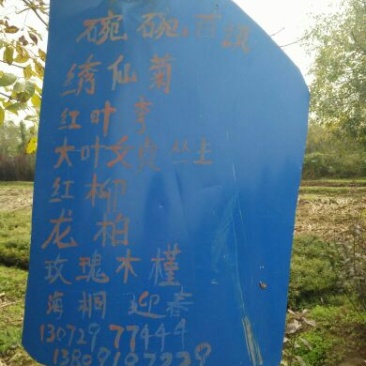 碗碗
绣仙菊
红叶李
大叶女贞 丛生
红柳
龙柏
玫瑰木槿
海桐 迎春
13072977444
13809197229